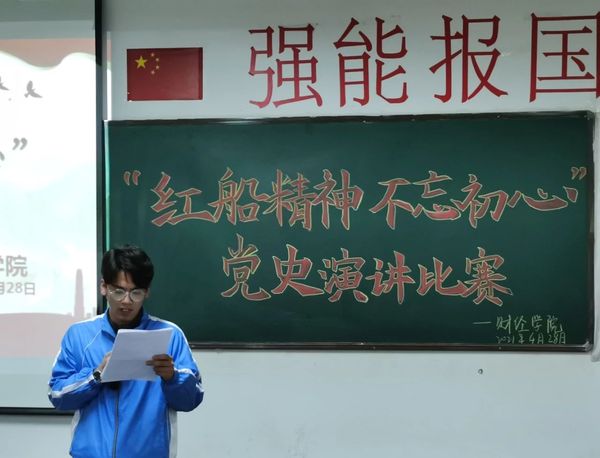 强能报国
“红船精神 不忘初心”
党史演讲比赛
—财经学院
2021年4月28日
”
学院
月28日